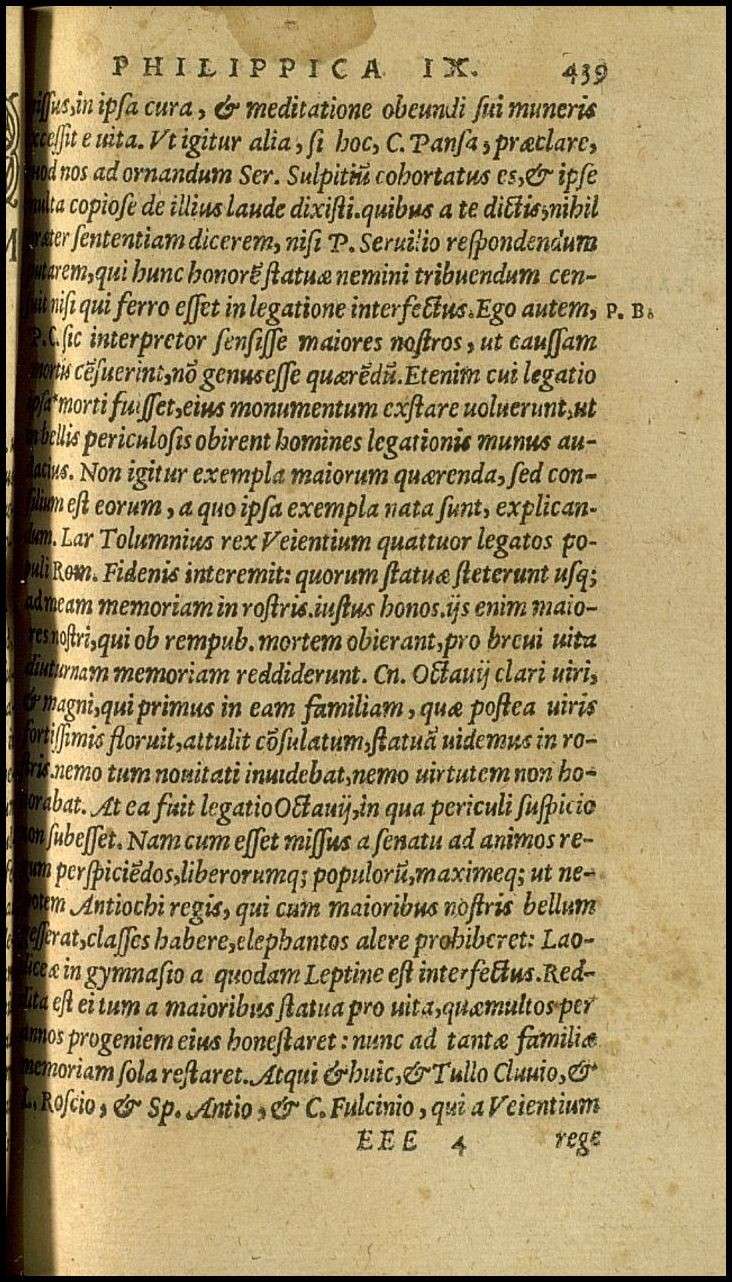 PHILIPPICA IX. 439
in ipſa cura, & meditatione obeundi ſui muneris
e uita. Vt igitur alia, ſi hoc, C. Panſa, præclare,
nos ad ornandum Ser. Sulpitiū cohortatus es, & ipſe
copioſe de illius laude dixiſti. quibus a te dictis, nihil
ſententiam dicerem, niſi P. Seruilio reſpondendum
qui hunc honorē ſtatuæ nemini tribuendum cen-
niſi qui ferro eſſet in legatione interfectus. Ego autem,
P. B.
P.C. ſic interpretor ſenſiſſe maiores noſtros, ut cauſſam
mortis cēſuerint, nō genus eſſe quærēdū. Etenim cui legatio
ipſa morti fuiſſet, eius monumentum exſtare uoluerunt, ut
in bellis periculoſis obirent homines legationis munus au-
dacius. Non igitur exempla maiorum quærenda, ſed con-
ſilium eſt eorum, a quo ipſa exempla nata ſunt, explican-
dum. Lar Tolumnius rex Veientium quattuor legatos po-
puli Rom. Fidenis interemit: quorum ſtatuæ ſteterunt uſq;
ad meam memoriam in roſtris. iuſtus honos. ijs enim maio-
res noſtri, qui ob rempub. mortem obierant, pro breui uita
diuturnam memoriam reddiderunt. Cn. Octauij clari uiri,
& magni, qui primus in eam familiam, quæ poſtea uiris
fortiſſimis floruit, attulit cōſulatum, ſtatuā uidemus in ro-
ſtris. nemo tum nouitati inuidebat, nemo uirtutem non ho-
norabat. At ea fuit legatio Octauij, in qua periculi ſuſpicio
non ſubeſſet. Nam cum eſſet miſſus a ſenatu ad animos re-
gum perſpiciēdos, liberorumq; populorū, maximeq; ut ne-
potem Antiochi regis, qui cum maioribus noſtris bellum
geſſerat, claſſes habere, elephantos alere prohiberet: Lao-
diceæ in gymnaſio a quodam Leptine eſt interfectus. Red-
dita eſt ei tum a maioribus ſtatua pro uita, quæ multos per
annos progeniem eius honeſtaret: nunc ad tantæ familiæ
memoriam ſola reſtaret. Atqui & huic, & Tullo Cluuio, &
L. Roſcio, & Sp. Antio, & C. Fulcinio, qui a Veientium
EEE 4 rege